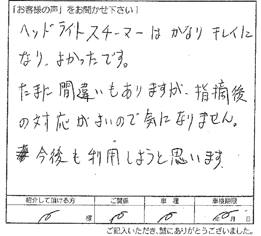 「お客様の声」をお聞かせ下さい!
ヘッドライトスチーマーはかなりキレイに
なり、よかったです。
たまに間違いもありますが、指摘後
の対応がよいので気になりません。
今後も利用しようと思います
紹介して頂ける方 ご関係 車種 車検期限
様 年 月 日
ご記入いただき、誠にありがとうございました。